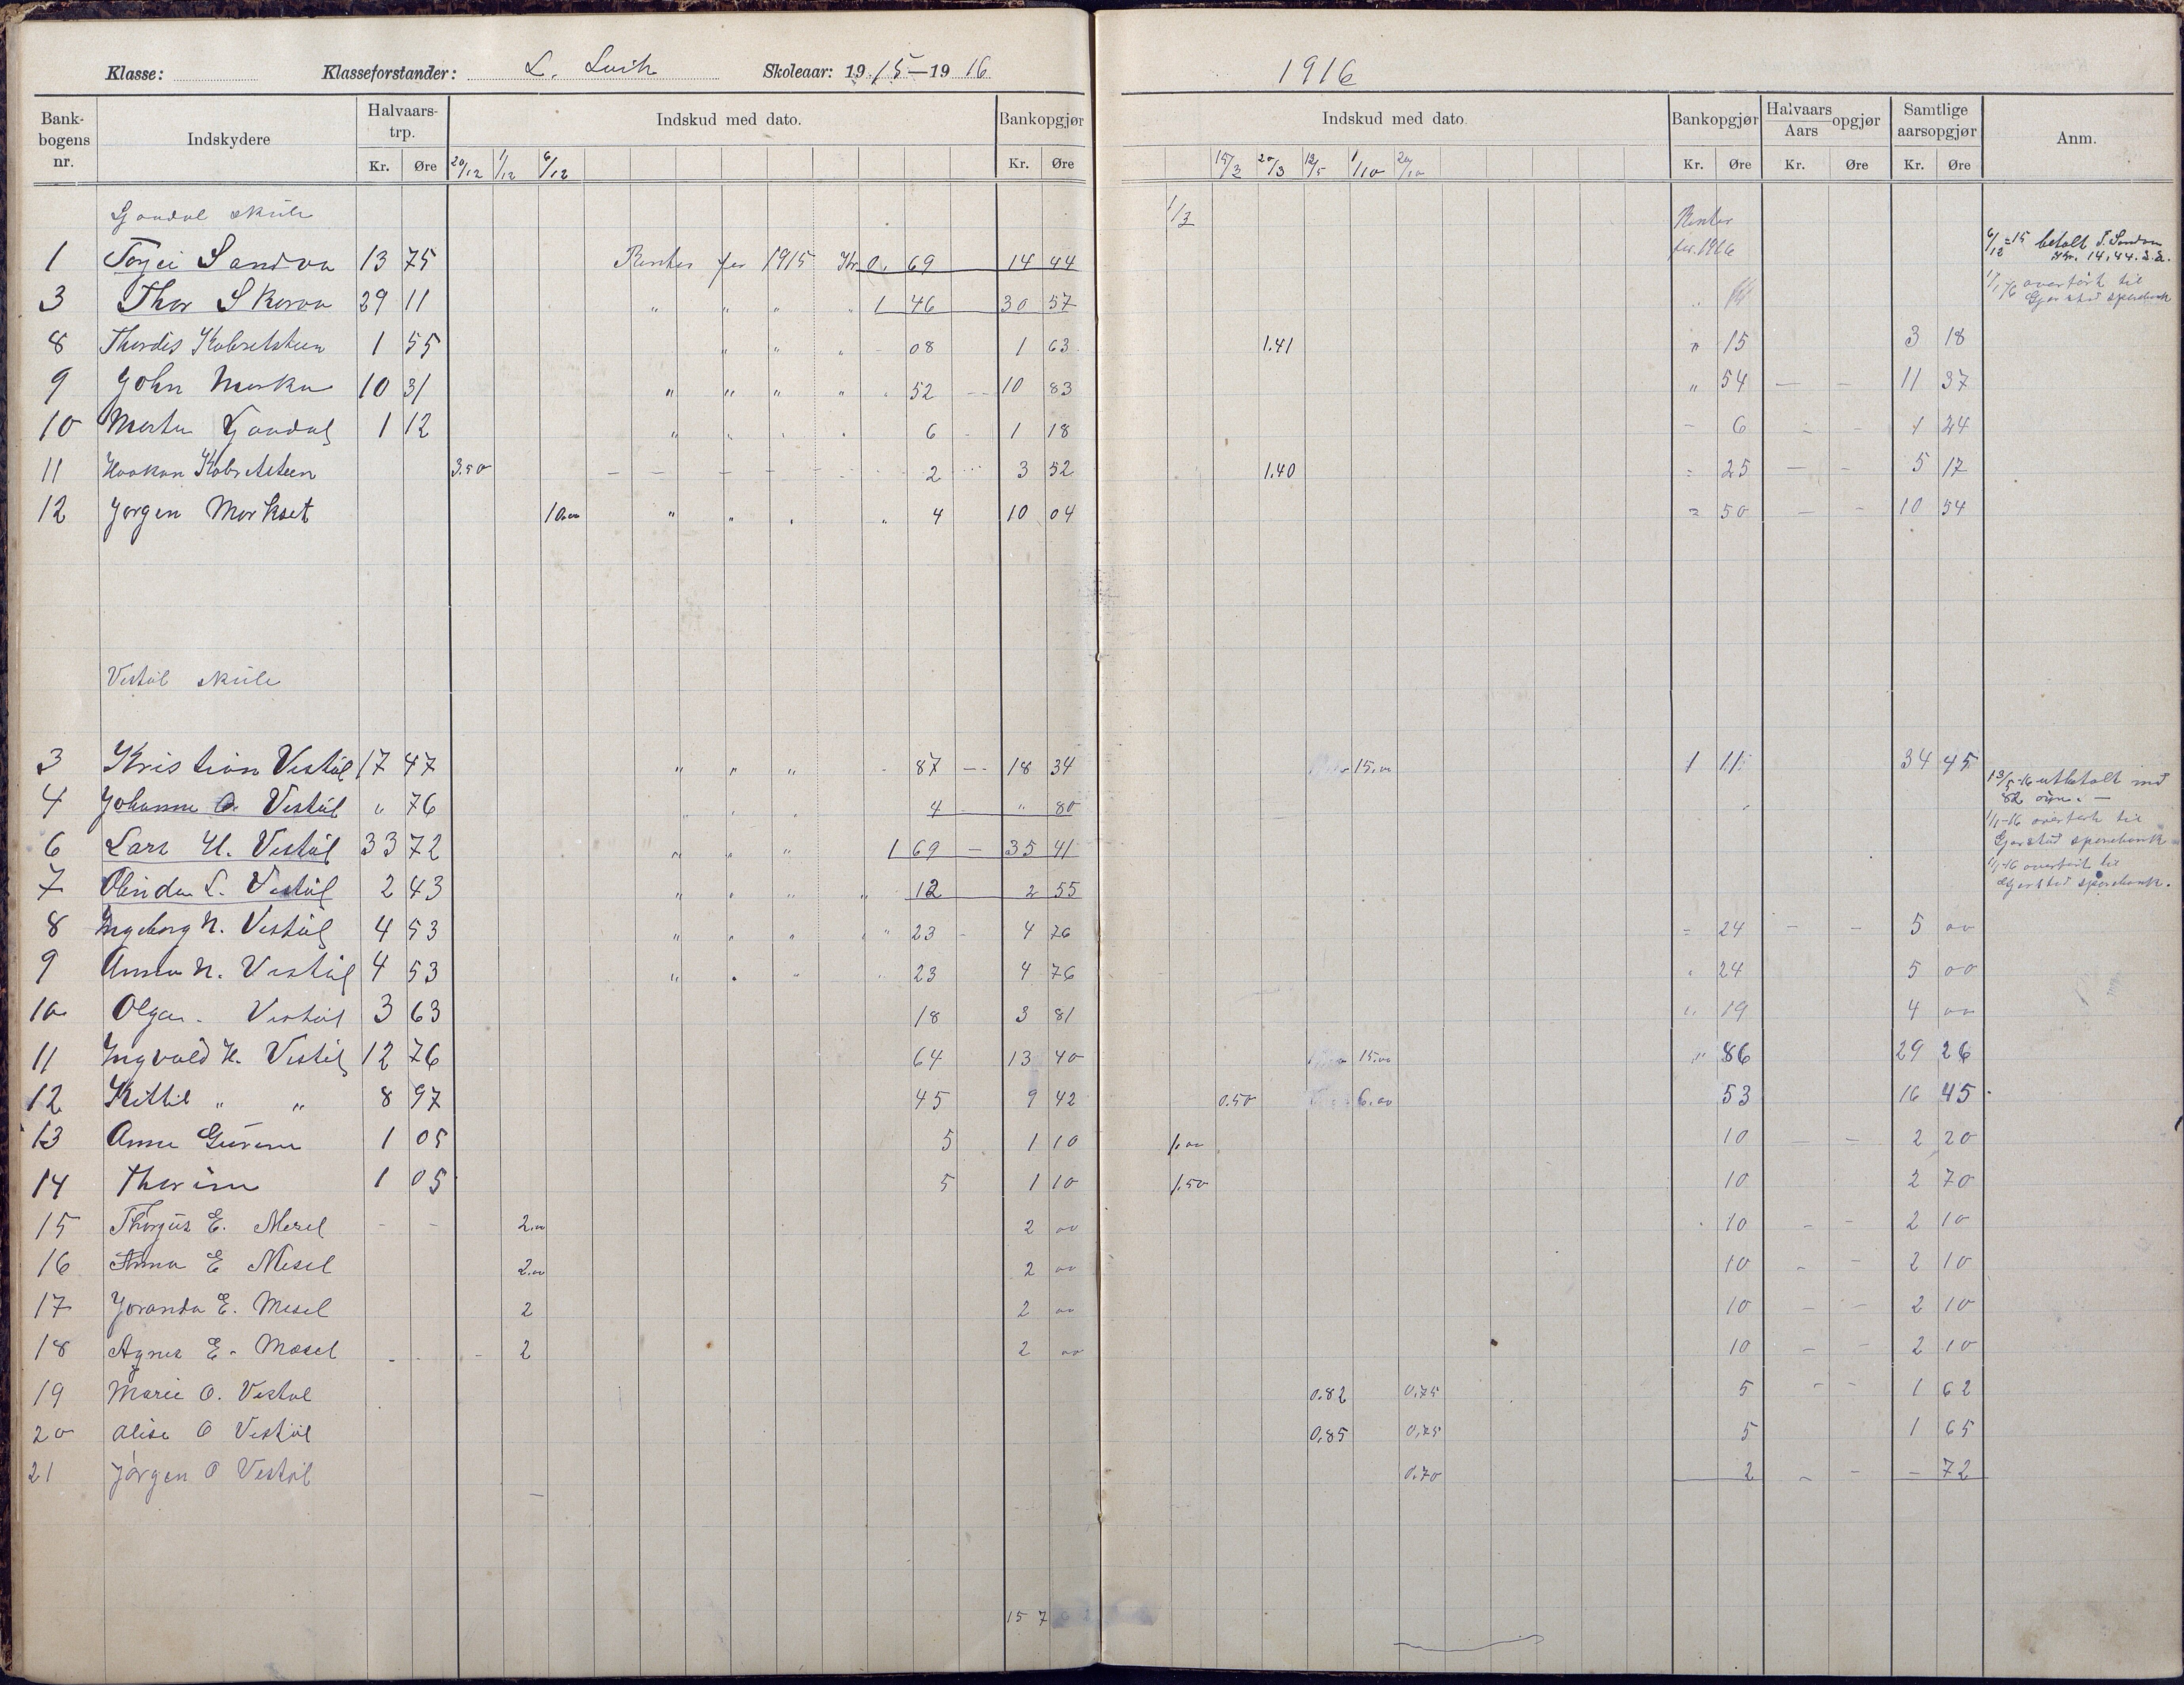 Klasse: Klasseforstander: L. Skoleaar: 1915—1916
Bankbogens nr. Indskydere Halvaarstrp. Kr. Øre Indskud med dato. 20/12 1/12 6/12 Bankopgjør Kr. Øre
Gaudal skule
1 Torjei Sandvn 13 75 Renter for 1915 Kr 0, 69 14 44
3 Thor Skorva 29 11 " " " " 1 46 30 57
8 Thordis 1 55 " " " - 08 1 63
9 John 10 31 " " " " . 52 10 83
10 1 12 " . . . 6 1 18
11 Haakon 3.50 2 3 52
12 Jørgen Morkset 10.00 " " . " 4 10 04
Vestøl skule
3 Kristian Vestøl 17 47 " " " 87 18 34
4 Johanne O. Vestøl " 76 4 " 80
6 Lars H. Vestøl 33 72 " " " 1 69 35 41
7 L. Vestøl 2 43 12 2 55
8 Ingeborg N. Vestøl 4 53 23 4 76
9 Anna N. Vestøl 4 53 23 4 76
10 Olga Vestøl 3 63 18 3 81
11 Ingvald H. Vestøl 12 76 64 13 40
12 Kittil " " 8 97 45 9 42
13 Anne 1 05 5 1 10
14 1 05 5 1 10
15 E. Mesel - - 2.00 2 00
16 Anna E Mesel 2.00 2 00
17 Joranda E. Mesel 2 2 00
18 Agnes E. Mesel 2 2 00
19 Marie O. Vestøl
20 Alise O Vestøl
21 Jørgen O Vestøl
15 7
1916
Indskud med dato. 15/3 20/3 12/5 1/10 20/10 Bankopgjør Kr. Øre Halvaars Aars opgjør Kr. Øre Samtlige aarsopgjør Kr. Øre Anm.
1/3 Renter
for 1916
6/12-15 betalt T. Sandvn
Kr. 14,44.
1/1-16 overført til
Gjerstad sparebank
1.41 " 15 3 18
" 54 - - 11 37
- 6 - - 1 24
1.40 25 - - 5 17
50 - - 10 54
15.00 1 11 34 45
13/5-16 utbetalt med
82 øre. -
1/1-16 overført til
Gjerstad sparebank
1/1-16 overført til
Gjerstad sparebank.
24 - - 5 00
24 5 00
19 4 00
15.00 86 29 26
0.50 6.00 53 16 45
1.00 10 - - 2 20
1.50 10 2 70
10 - - 2 10
10 - - 2 10
10 - - 2 10
10 - - 2 10
0.82 0.75 5 - - 1 62
0.85 0.75 5 1 65
0.70 2 - - - 72